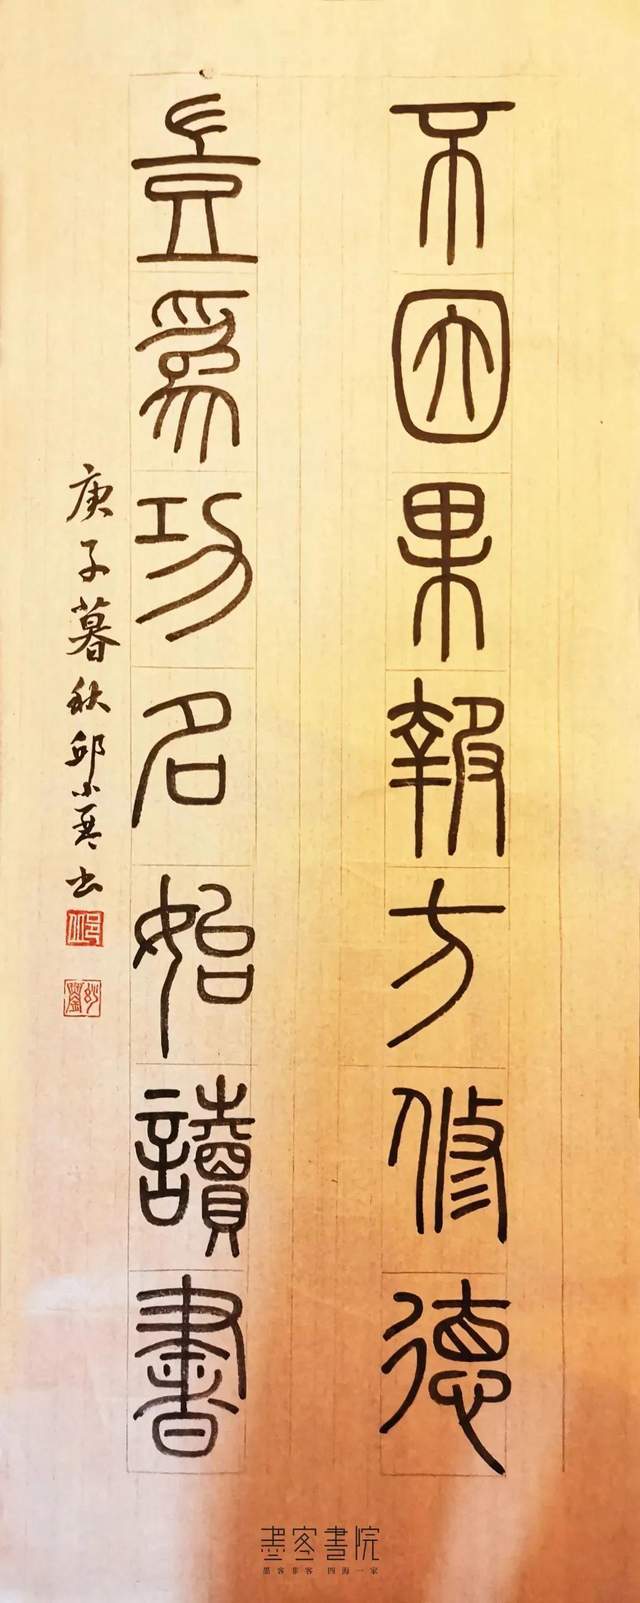 不因果報方修德
豈爲功名始讀書
庚子暮秋邱小琴书
墨客書院
墨客非客 四海一家